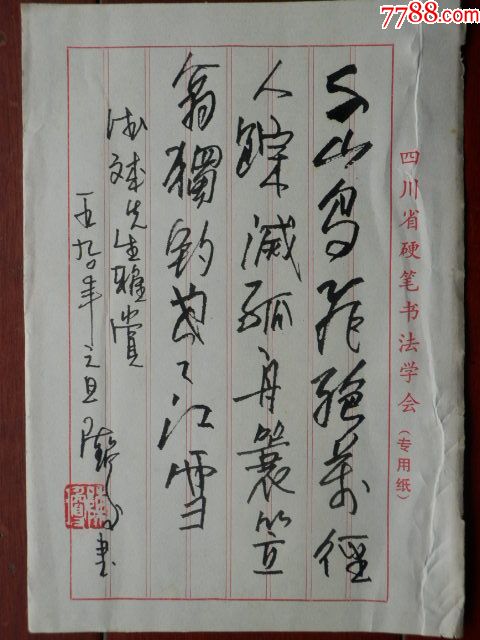 7788.com
四川省硬笔书法学会(专用纸)
千山鸟飛绝萬径
人踪滅孤舟簑笠
翁獨钓寒江雪
先生雅赏
九〇年元旦
书